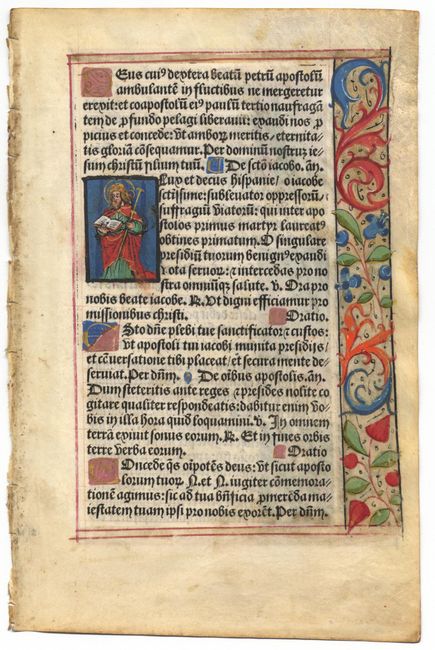 Deus cuiꝰ dextera beatū petrū apostolū
ambulantē in fluctibus ne mergeretur
erexit: et coapostolū eiꝰ paulū tertio naufragā
tem de ꝓfundo pelagi liberauit: exaudi nos ꝓ
picius et concede: vt amboꝝ meritis/ eternita/
tis gloriā cōsequamur. Per dominū nostruz ie/
sum christū filium tuū. De sctō iacobo. añ.
O Lux et decus hispanie/ o iacobe
sctīssime: subleuator oppressorū/
suffragiū viatorū: qui inter apo
stolos primus martyr laureatꝰ
obtines primatum. O singulare
presidiū tuorum benignꝰ exaudi
vota seruoꝝ: ⁊ intercedas pro no
stra omniūqꝫ salute. v. Ora pro
nobis beate iacobe. R. Vt digni efficiamur pro
missionibus christi. Oratio.
Esto dñe plebi tue sanctificator ⁊ custos:
vt apostoli tui iacobi munita presidijs/
et cōuersatione tibi placeat/ et secura mente de/
seruiat. Per dñm. De oībus apostolis. añ.
Dum steteritis ante reges ⁊ presides nolite co
gitare qualiter respondeatis: dabitur enim vo/
bis in illa hora quid loquamini. v. In omnem
terrā exiuit sonus eorum. R. Et in fines orbis
terre verba eorum. Oratio
Concede qs oīpotēs deus: vt sicut aposto
lorum tuoꝝ N. et N. iugiter cōmemora/
tionē agimus: sic ad tua bn̄ficia ꝓmerēda ma/
iestatem tuam ipsi pro nobis exorēt. Per dñm.